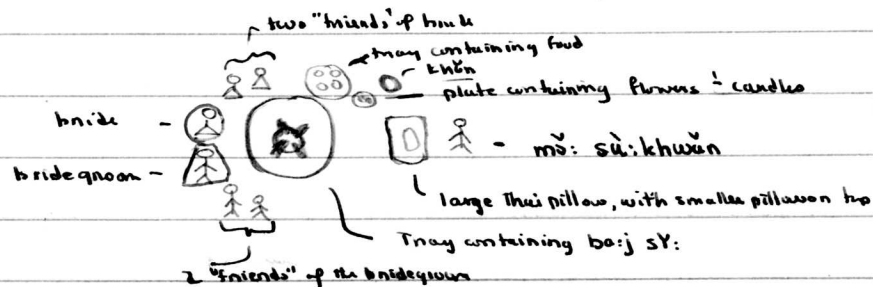 two "friends" of bride
tray containing food
khǒn
plate containing flowers & candles
bride -
bridegroom -
- mɔ̌: sù:khwǎn
large Thai pillow, with smaller pillow on top
Tray containing ba:j sǏ:
2 "friends" of the bridegroom